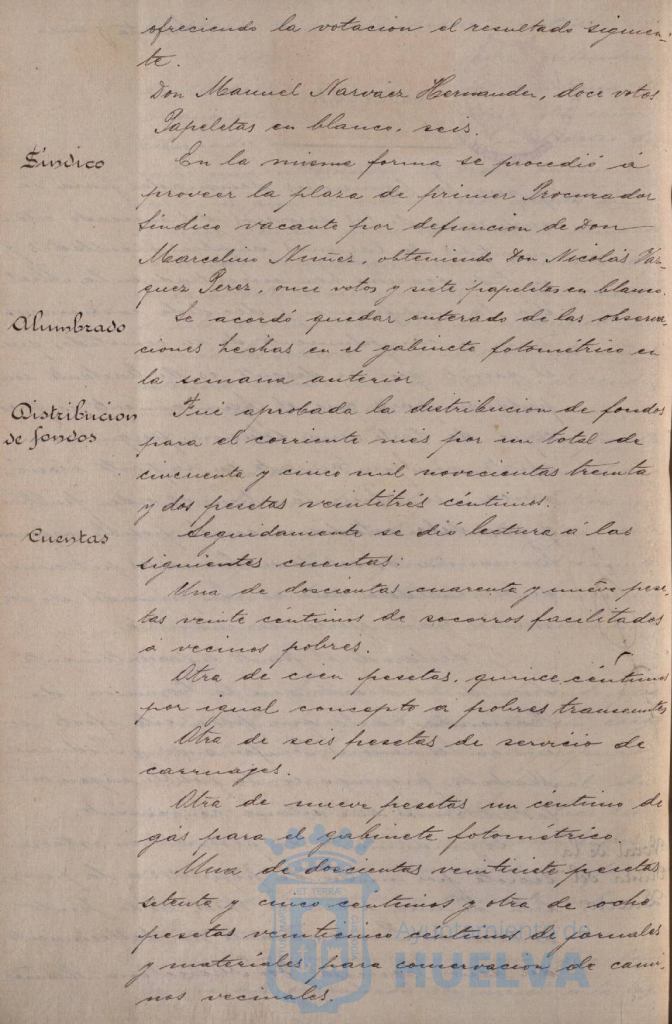 ofreciendo la votacion el resultado siguien-
te.
Don Manuel Narváez Hernandez, doce votos
Papeletas en blanco, seis.
Síndico
En la misma forma se procedió á
proveer la plaza de primer Procurador
Síndico vacante por defuncion de Don
Marcelino Nuñez, obteniendo Don Nicolás Váz-
quez Perez, once votos y siete papeletas en blanco.
Alumbrado
Se acordó quedar enterado de las observa-
ciones hechas en el gabinete fotométrico en
la semana anterior
Distribucion
de fondos
Fué aprobada la distribucion de fondos
para el corriente més por un total de
cincuenta y cinco mil novecientas treinta
y dos pesetas veintitrés céntimos.
Cuentas
Seguidamente se dió lectura á las
siguientes cuentas:
Una de doscientas cuarenta y nueve pese-
tas veinte céntimos de socorros facilitados
á vecinos pobres.
Otra de cien pesetas, quince céntimos
por igual concepto a pobres transeuntes
Otra de seis pesetas de servicio de
carruages.
Otra de nueve pesetas un céntimo de
gás para el gabinete fotométrico.
Una de doscientas veintisiete pesetas
setenta y cinco centimos y otra de ocho
pesetas veinticinco centimos de jornales
y materiales para conservacion de cami-
nos vecinales.
Ayuntamiento de
HUELVA